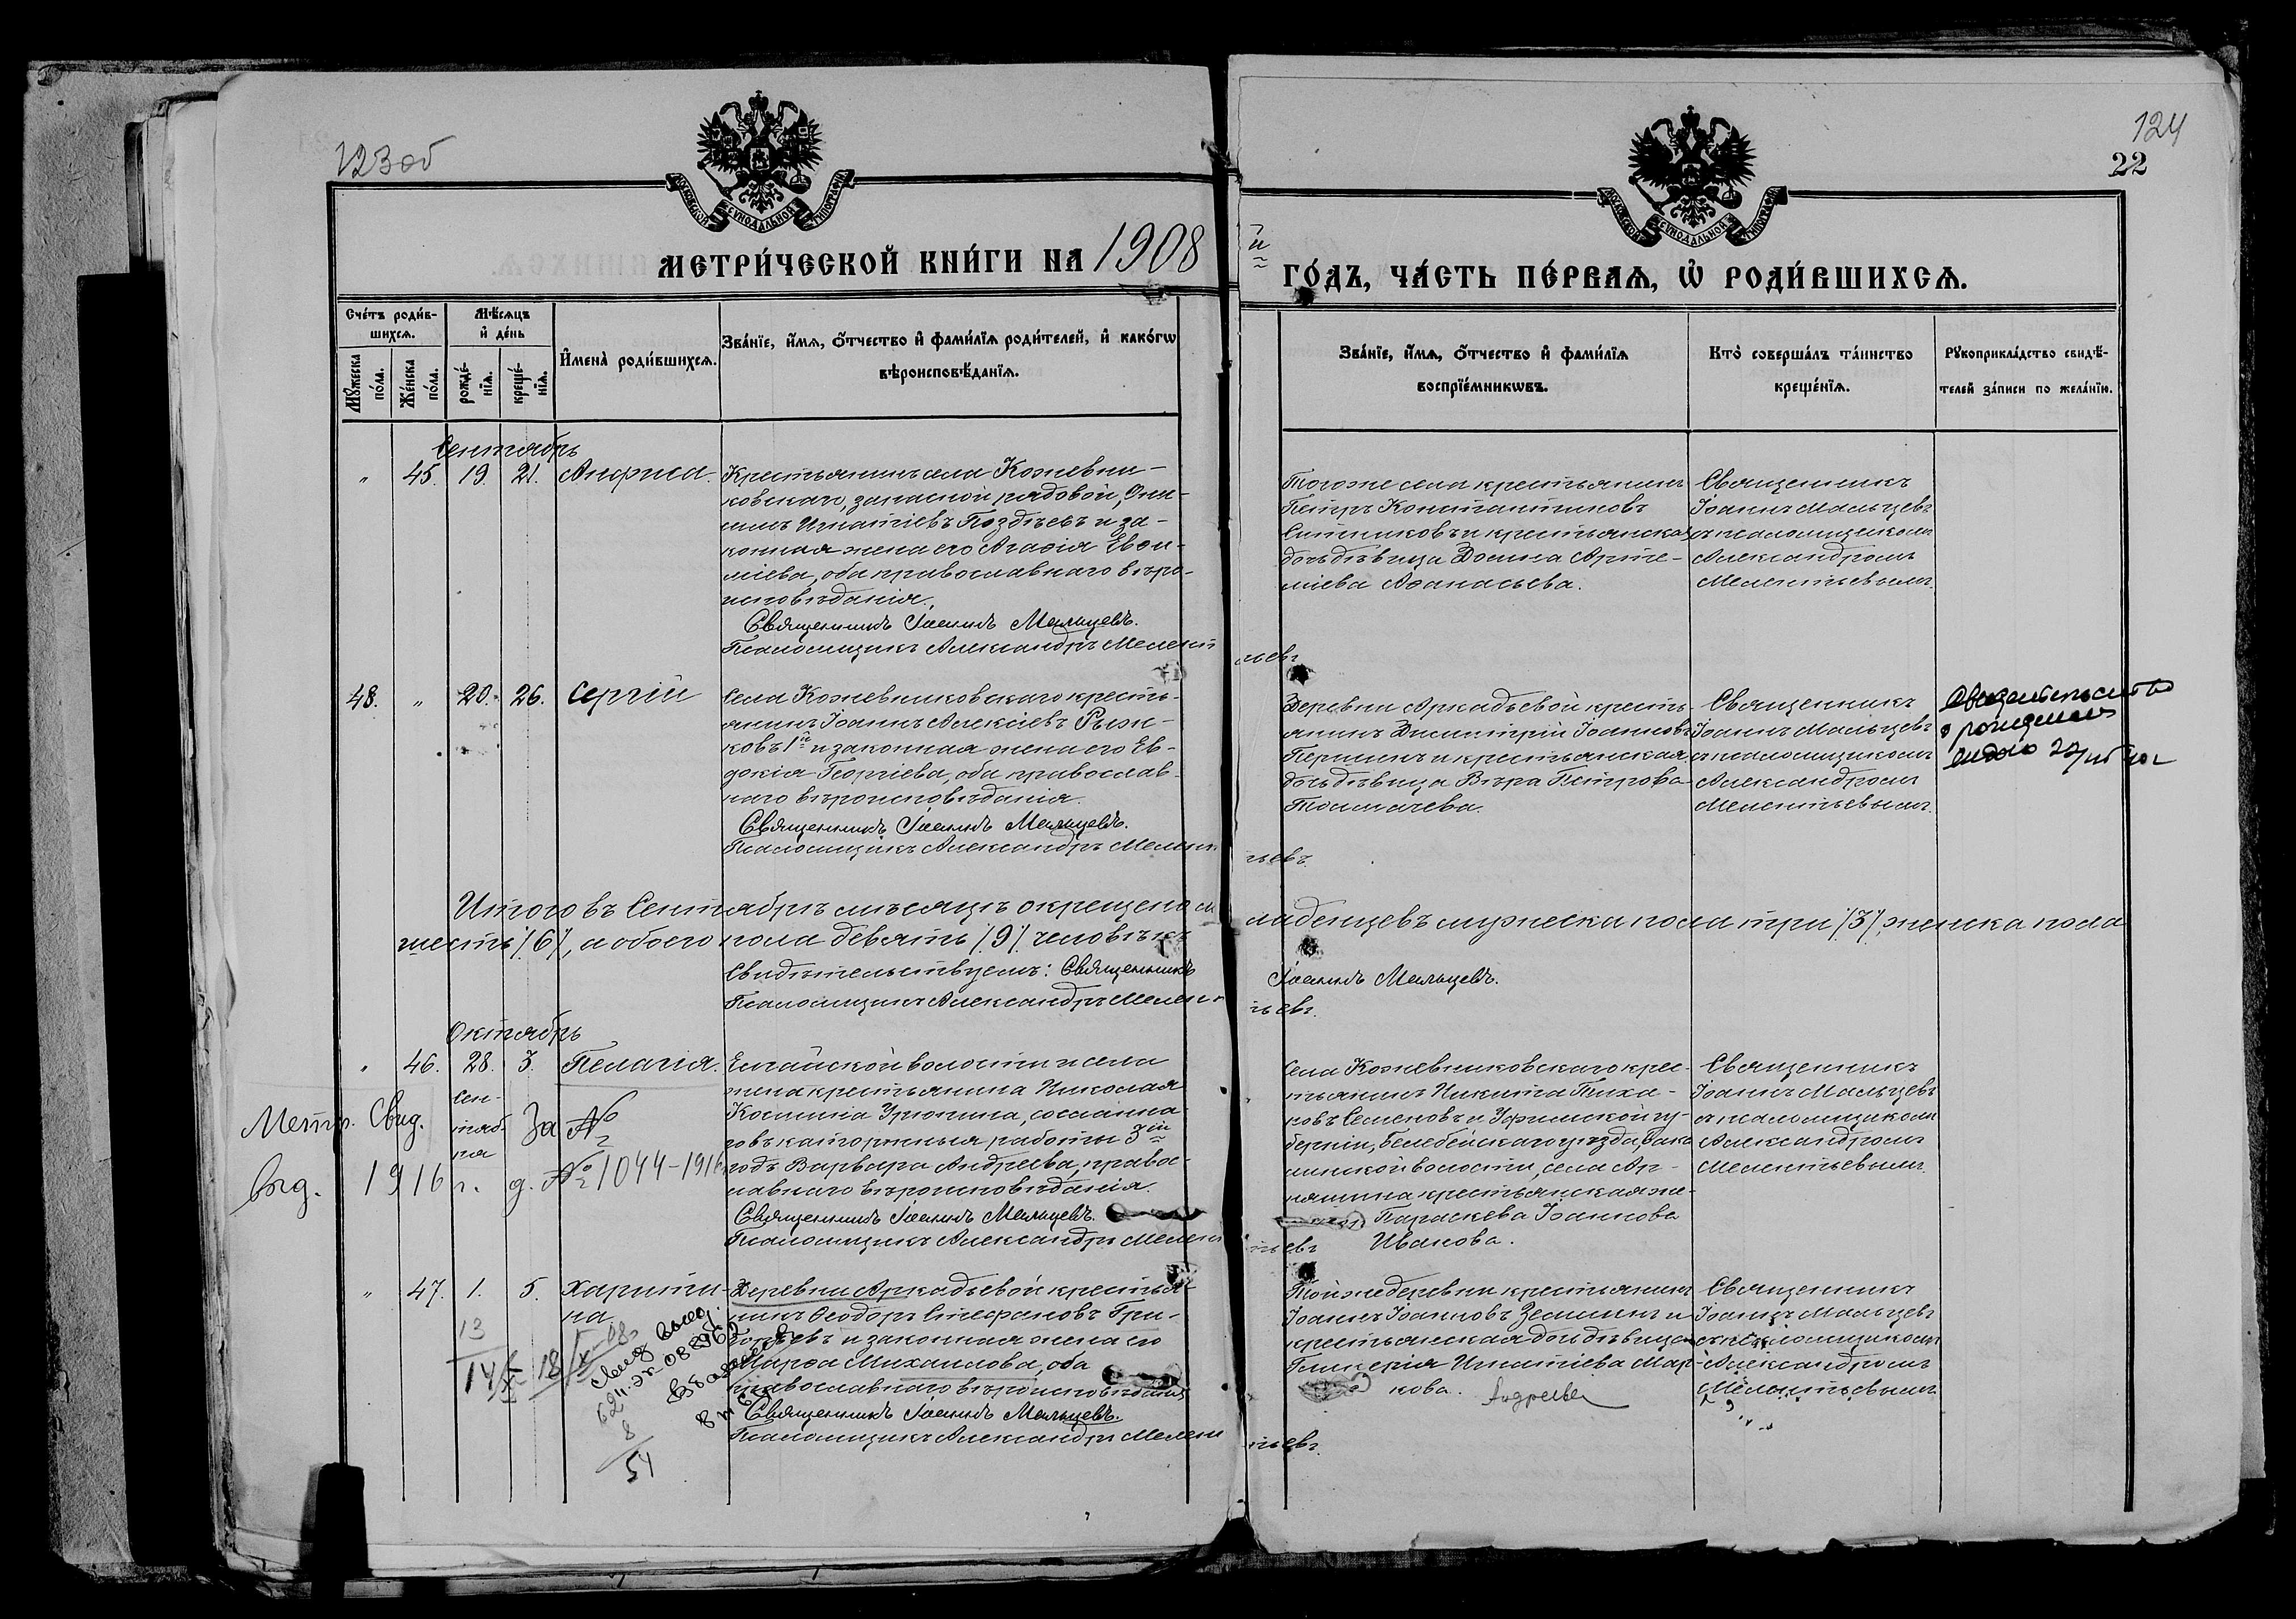 123 об
124
22
МОСКОВСКОЙ СѴНОДАЛЬНОЙ ТИПОГРАФІИ
МОСКОВСКОЙ СѴНОДАЛЬНОЙ ТИПОГРАФІИ
МЕТРИ́ЧЕСКОЙ КНИ́ГИ НА 1908 й ГО́ДЪ, ЧА́СТЬ ПЕ́РВАѦ, Ѡ҆ РОДИ́ВШИХСѦ.
Сче́тъ роди́в-
шихсѧ.
Мѣ́сѧцъ
и҆ де́нь
Мꙋ́жеска по́ла.
Же́нска по́ла.
рожде́-
нїѧ.
креще́-
нїѧ.
И҆мена̀ роди́вшихсѧ.
Зва́нїе, и҆́мѧ, ѻ҆́тчество и҆ фами́лїѧ роди́телей, и҆ како́гѡ
вѣроисповѣ́данїѧ.
Зва́нїе, и҆́мѧ, ѻ҆́тчество и҆ фами́лїѧ
воспрїе́мникѡвъ.
Кто̀ соверша́лъ та́инство
креще́нїѧ.
Рꙋкоприкла́дство свидѣ́-
телей за́писи по жела́нїю.
Сентябрь
" 45. 19. 21. Анфиса.
Крестьянинъ села Кожевни-
ковскаго, запасной рядовой, Они-
симъ Игнатіевъ Поздѣевъ и за-
конная жена его Агаѳія Евѳи-
міева, оба православнаго вѣро-
исповѣданія.
Священникъ Іоаннъ Мальцевъ.
Псаломщикъ Александръ Мелентьевъ
Того же села крестьянинъ
Петръ Константиновъ
Ситниковъ и крестьянская
дочь дѣвица Домна Арте-
міева Аѳанасьева.
Священникъ
Іоаннъ Мальцевъ
съ псаломщикомъ
Александромъ
Мелентьевымъ.
48. " 20. 26. Сергій
Села Кожевниковскаго кресть-
янинъ Іоаннъ Алексіевъ Рыж-
ковъ 1й и законная жена его Ев-
докія Георгіева, оба православ-
наго вѣроисповѣданія.
Священникъ Іоаннъ Мальцевъ.
Псаломщикъ Александръ Мелентьевъ.
Деревни Аркадьевой кресть-
янинъ Димитрій Іоанновъ
Першинъ и крестьянская
дочь дѣвица Вѣра Петрова
Толмачева.
Священникъ
Іоаннъ Мальцевъ
съ псаломщикомъ
Александромъ
Мелентьевымъ.
Свидетельство
о рождении
Итого въ Сентябрѣ мѣсяцѣ окрещено младенцевъ мужеска пола три /3/, женска пола
шесть /6/, а обоего пола девять /9/ человѣкъ
Свидѣтельствуемъ: Священникъ Іоаннъ Мальцевъ.
Псаломщикъ Александръ Мелентьевъ.
Октябрь
" 46. 28. 3. Пелагія.
Сен-
тяб-
ря
Елгайской волости и села
жена крестьянина Николая
Косьмина Урюпина, сосланна-
го въ каторжныя работы 3ій
годъ Варвара Андреева, правос-
лавнаго вѣроисповѣданія.
Священникъ Іоаннъ Мальцевъ.
Псаломщикъ Александръ Мелентьевъ
Села Кожевниковскаго крес-
тьянинъ Никита Тиха-
новъ Семеновъ и Уфимской гу-
берніи, Белебейскаго уѣзда,
волости, села
крестьянская же-
Параскева Іоаннова
Иванова.
Священникъ
Іоаннъ Мальцевъ
съ псаломщикомъ
Александромъ
Мелентьевымъ.
Метр. Свид. За №
выд. 1916 г. д. № 1044-1916
" 47. 1. 5. Харити-
на
Деревни Аркадьевой крестья-
нинъ Ѳеодоръ Стефановъ Гри-
горьевъ и законная жена его
Марѳа Михаилова, оба
православнаго вѣроисповѣданія
Священникъ Іоаннъ Мальцевъ.
Псаломщикъ Александръ Мелентьевъ.
Той же деревни крестьянинъ
Іоаннъ Іоанновъ Земинъ и
крестьянская дочь дѣвица
Гликерія Игнатіева Мар-
кова. Андреева
Священникъ
Іоаннъ Мальцевъ
съ псаломщикомъ
Александромъ
Мелентьевымъ
13
14/X 18/X-08г
8
54